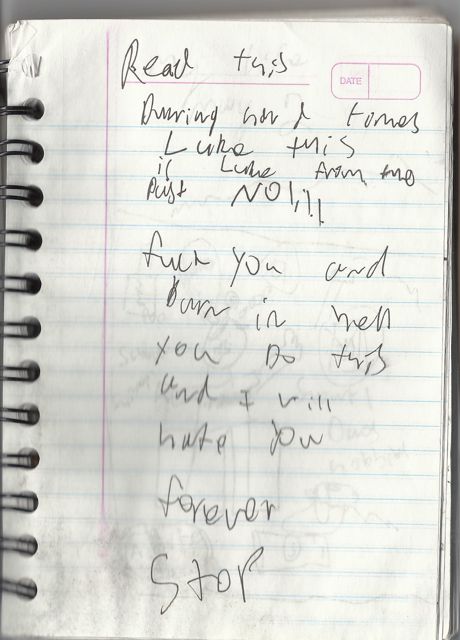 Read this
DATE
During hard times
Luke this
is Luke from the
Past NO!!!!
fuck you and
burn in hell
you Do this
and I will
hate you
forever
STOP